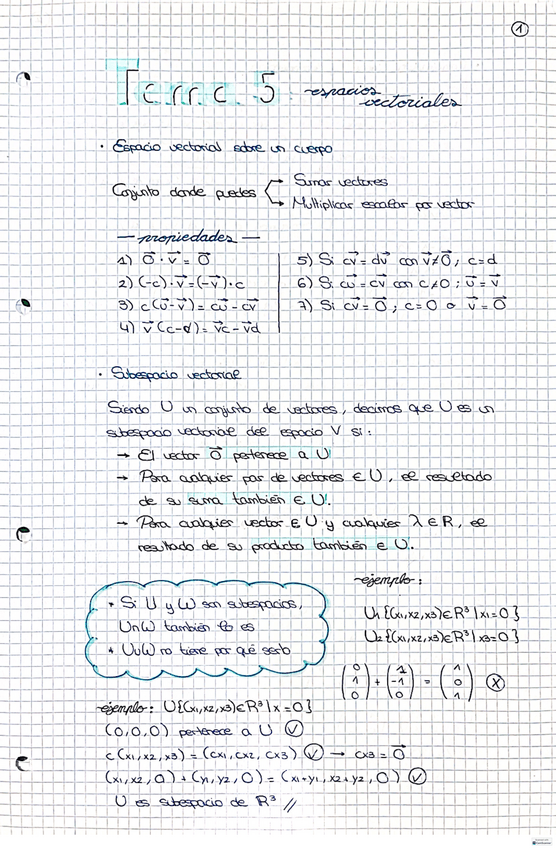 1
Tema 5: espacios
vectoriales
· Espacio vectorial sobre un cuerpo
Conjunto donde puedes → Sumar vectores
→ Multiplicar escalar por vector
— propiedades —
1) 0⃗ · v⃗ = 0⃗
2) (-c) · v⃗ = (-v⃗) · c
3) c(u⃗ - v⃗) = cu⃗ - cv⃗
4) v⃗(c-d) = v⃗c - v⃗d
5) Si cv⃗ = dv⃗ con v⃗ ≠ 0⃗, c=d
6) Si cu⃗ = cv⃗ con c ≠ 0; u⃗ = v⃗
7) Si cv⃗ = 0⃗; c=0 o v⃗ = 0⃗
· Subespacio vectorial
Siendo U un conjunto de vectores, decimos que U es un
subespacio vectorial del espacio V si:
→ El vector 0⃗ pertenece a U
→ Para cualquier par de vectores ∈ U, el resultado
de su suma también ∈ U.
→ Para cualquier vector ∈ U y cualquier λ ∈ R, el
resultado de su producto también ∈ U.
* Si U y W son subespacios,
U∩W también lo es
* U∪W no tiene por qué serlo
ejemplo:
U₁{(x1,x2,x3) ∈ R³ | x1=0}
U₂{(x1,x2,x3) ∈ R³ | x3=0}
(0 1 0) + (1 -1 1) = (1 0 1) X
ejemplo: U{(x1,x2,x3) ∈ R³ | x=0}
(0,0,0) pertenece a U ✓
c(x1,x2,x3) = (cx1, cx2, cx3) ✓ → cx3 = 0⃗
(x1,x2,0) + (y1,y2,0) = (x1+y1, x2+y2, 0) ✓
U es subespacio de R³ //